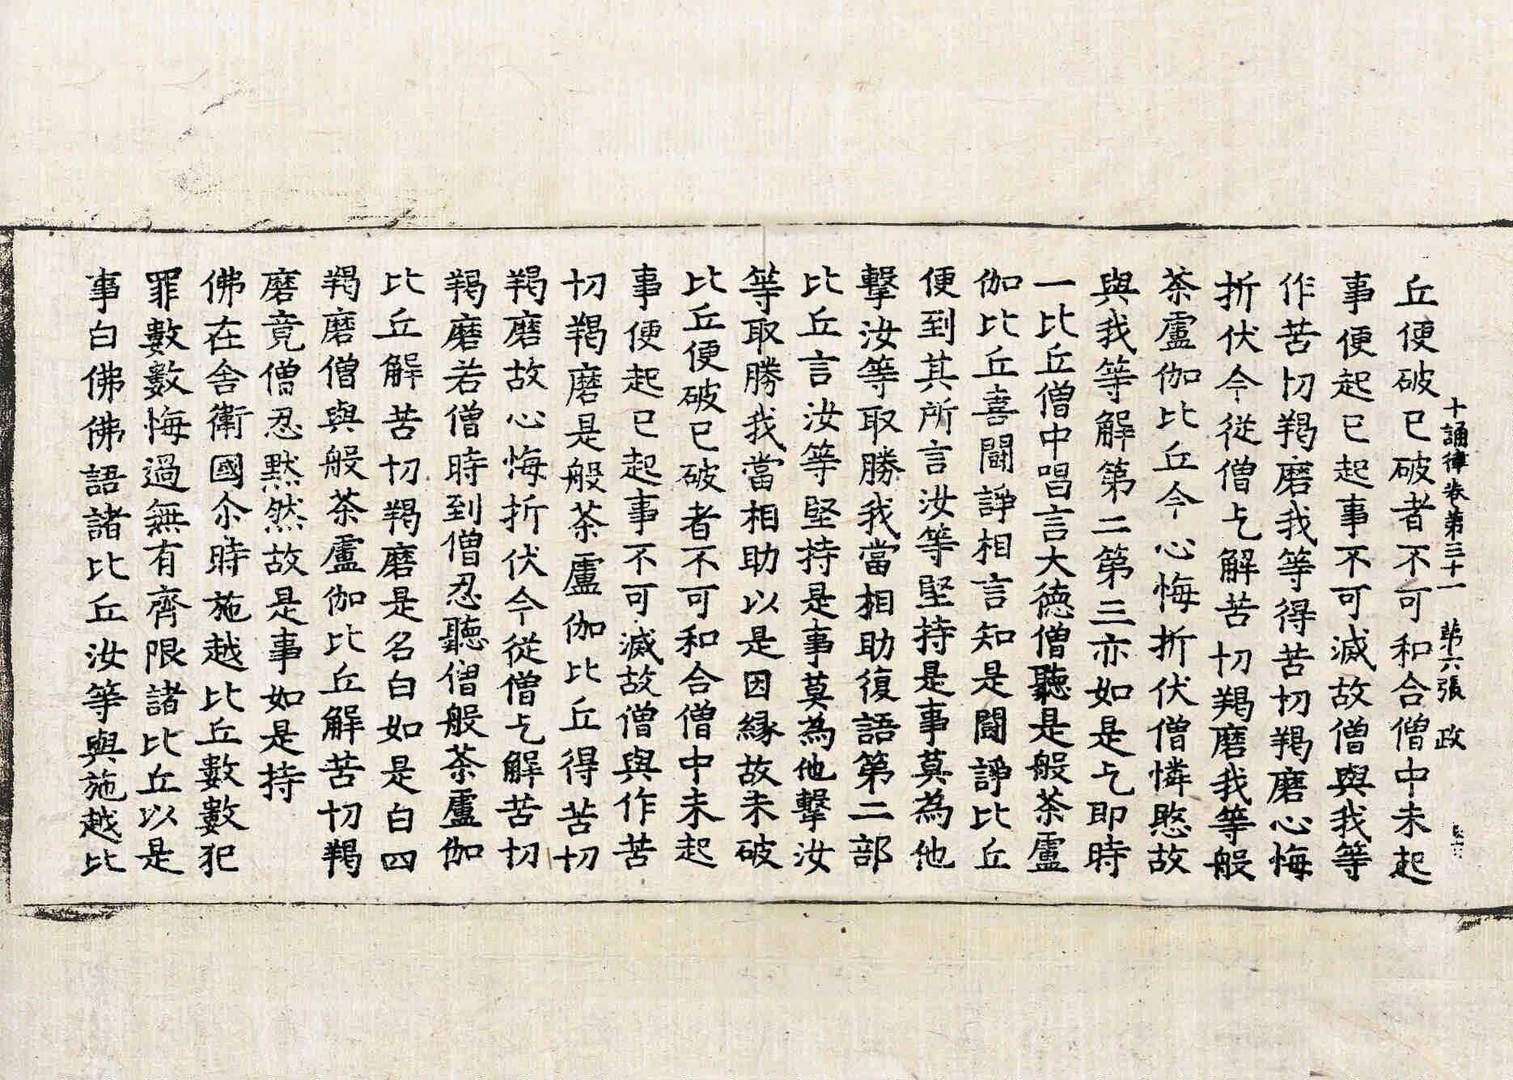 十誦律卷第三十一 苐六張 政
丘便破已破者不可和合僧中未起
事便起已起事不可滅故僧與我等
作苦切羯磨我等得苦切羯磨心悔
折伏今從僧乞解苦切羯磨我等般
茶盧伽比丘今心悔折伏僧憐愍故
與我等解第二第三亦如是乞即時
一比丘僧中唱言大德僧聽是般茶盧
伽比丘喜鬪諍相言知是鬪諍比丘
便到其所言汝等堅持是事莫為他
擊汝等取勝我當相助復語第二部
比丘言汝等堅持是事莫為他擊汝
等取勝我當相助以是因緣故未破
比丘便破已破者不可和合僧中未起
事便起已起事不可滅故僧與作苦
切羯磨是般茶盧伽比丘得苦切
羯磨故心悔折伏今從僧乞解苦切
羯磨若僧時到僧忍聽僧般茶盧伽
比丘解苦切羯磨是名白如是白四
羯磨僧與般茶盧伽比丘解苦切羯
磨竟僧忍黙然故是事如是持
佛在舍衛國尒時施越比丘數數犯
罪數數悔過無有齊限諸比丘以是
事白佛佛語諸比丘汝等與施越比